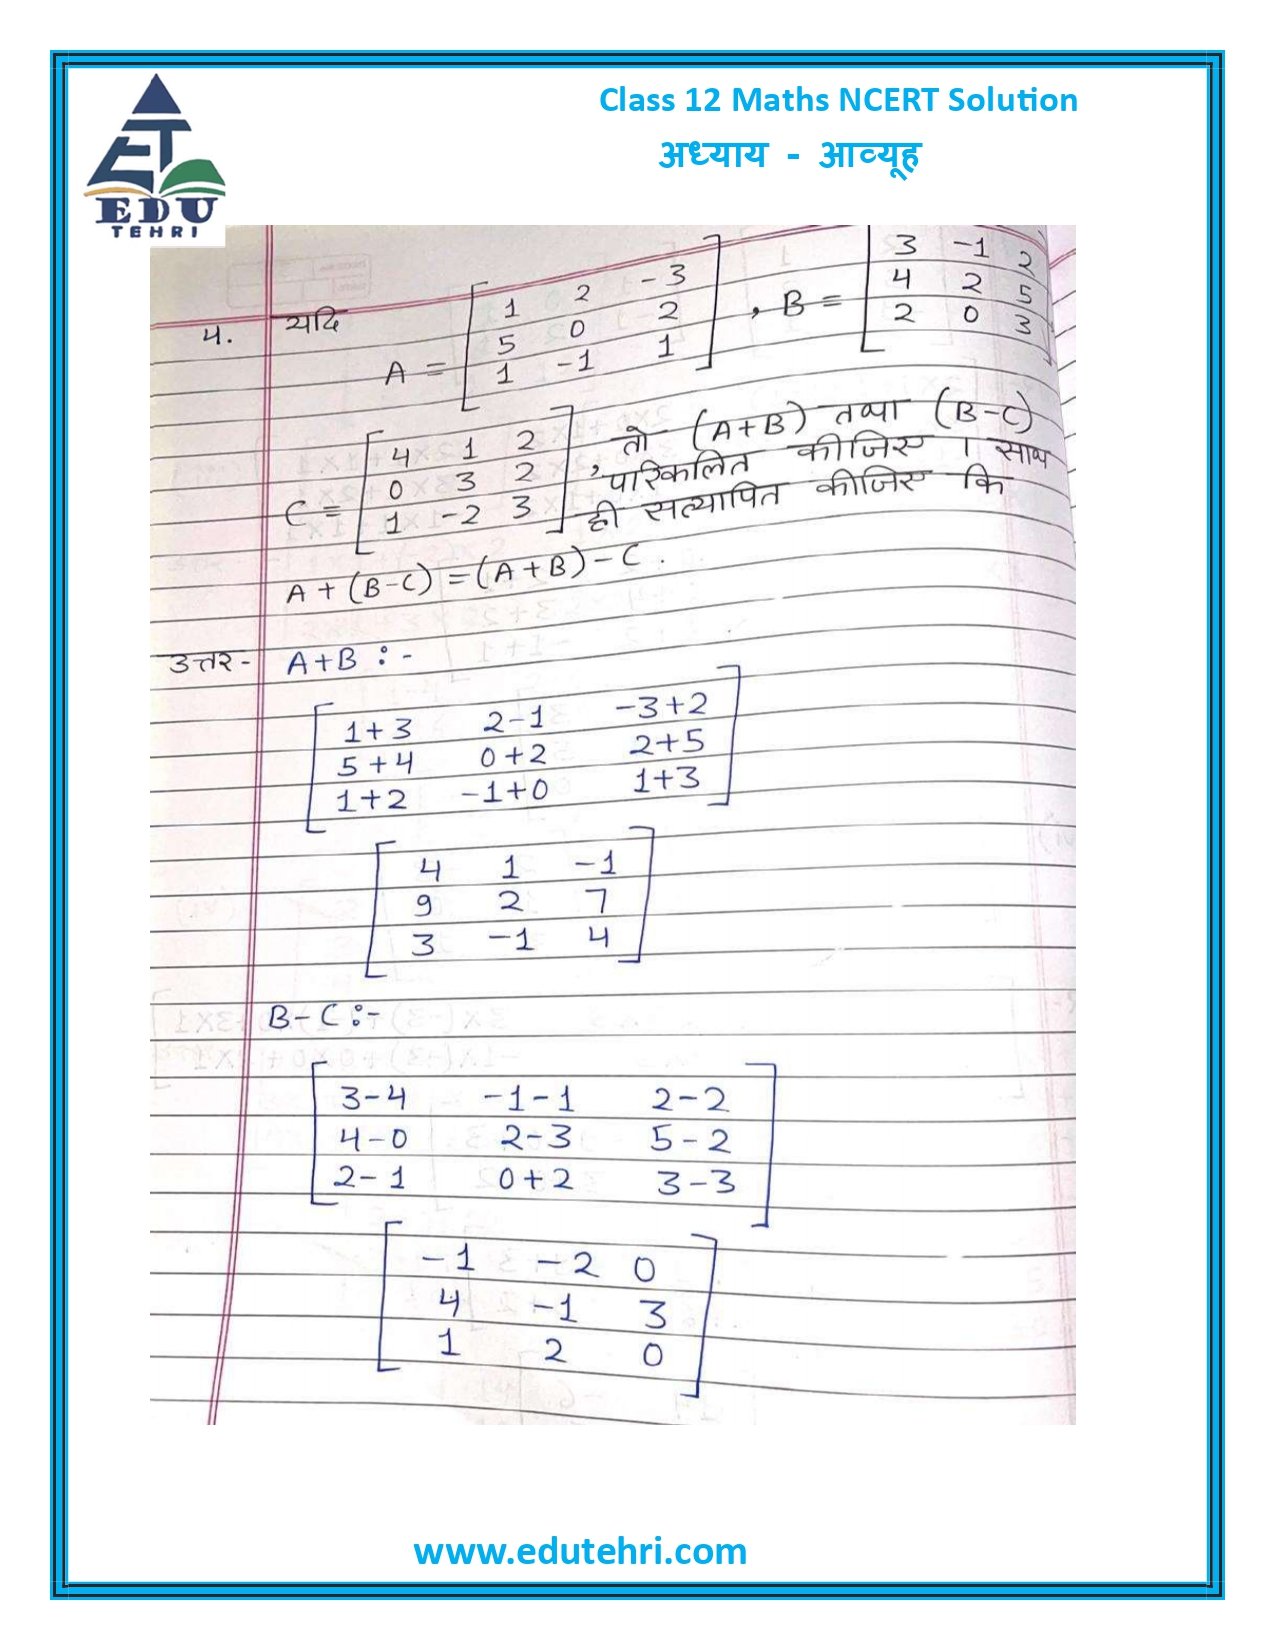 Class 12 Maths NCERT Solution
अध्याय - आव्यूह
EDU
TEHRI
4. यदि A = [1 2 -3
5 0 2
1 -1 1], B = [3 -1 2
4 2 5
2 0 3]
C = [4 1 2
0 3 2
1 -2 3], तो (A+B) तथा (B-C)
पारिकलित कीजिए । साथ
ही सत्यापित कीजिए कि
A+(B-C) = (A+B)-C.
उत्तर- A+B :-
[1+3 2-1 -3+2
5+4 0+2 2+5
1+2 -1+0 1+3]
[4 1 -1
9 2 7
3 -1 4]
B-C :-
[3-4 -1-1 2-2
4-0 2-3 5-2
2-1 0+2 3-3]
[-1 -2 0
4 -1 3
1 2 0]
www.edutehri.com